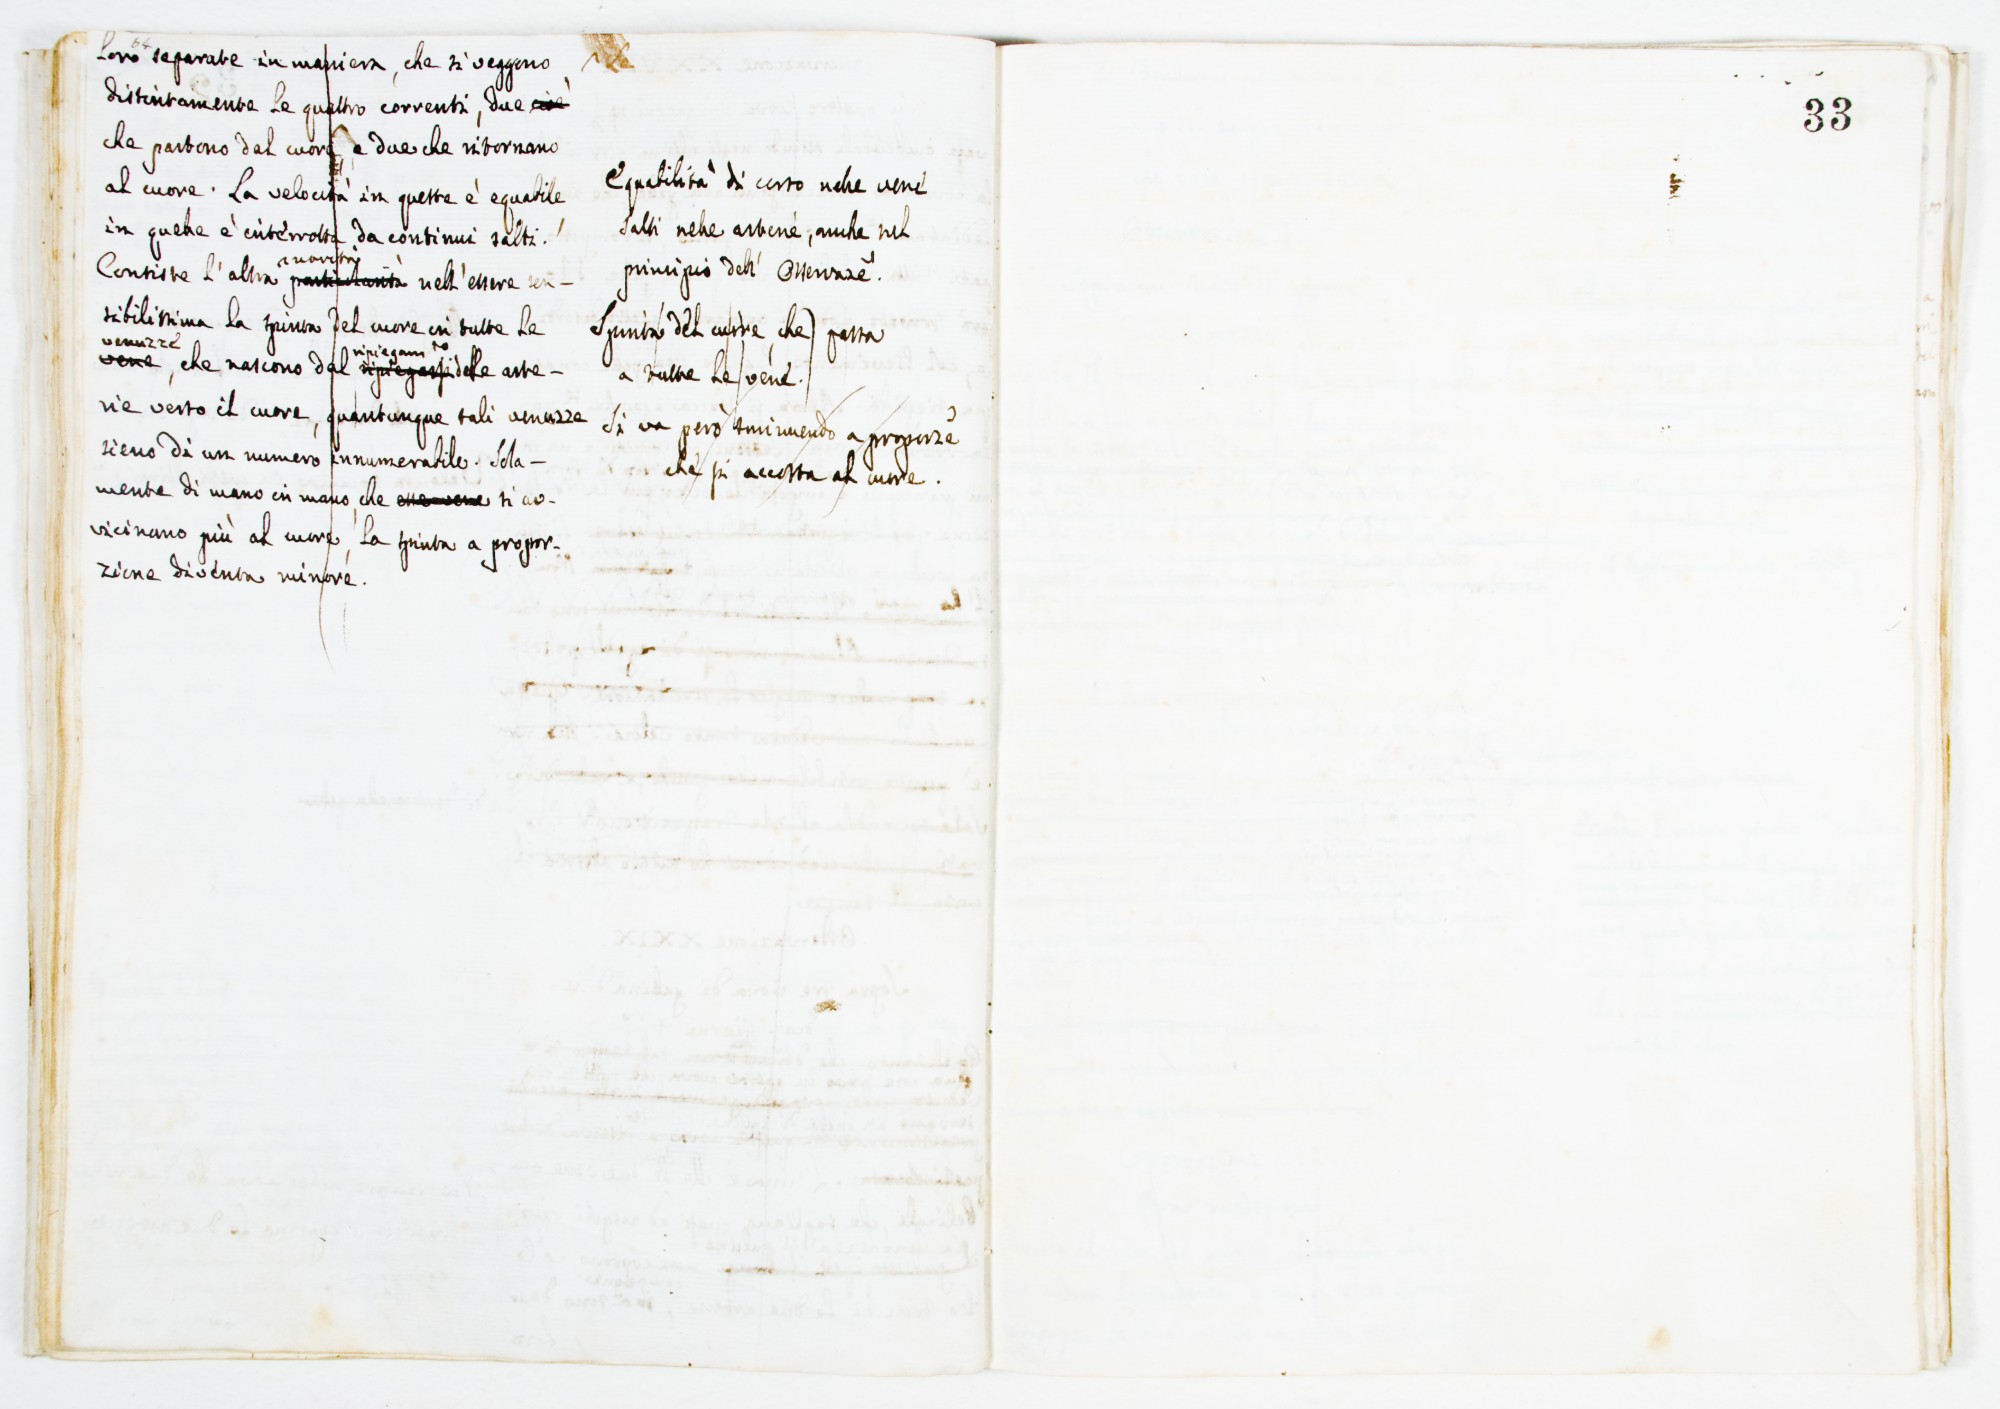 64
loro separate in maniera, che si veggono
distintamente le quattro correnti, due cioè
che partono dal cuore, e due che ritornano
al cuore. La velocità in queste è equabile
in quelle è interrotta da continui salti.
Consiste l'altra particolarità nell'essere sen-
novità
sibilissima la spinta del cuore in tutte le
venuzze
vene, che nascono dal ripiegarsi delle arte-
ripiegam.to
rie verso il cuore, quantunque tali venuzze
sieno di un numero innumerabile. Sola-
mente di mano in mano, che esse vene si av-
vicinano più al cuore, la spinta a propor-
zione diventa minore.
Equabilità di corso nelle vene
salti nelle arterie, anche nel
principio dell' Osservaze.
Spinta del cuore, che passa
a tutte le vene.
Si va però sminuendo a proporze
che si accosta al cuore.
33